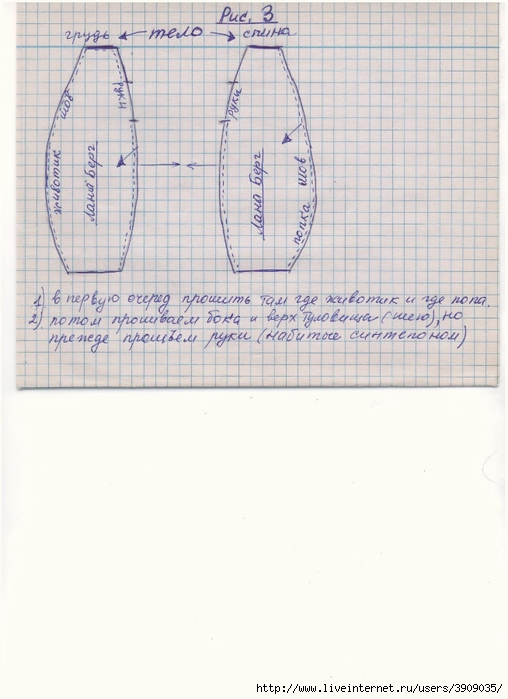 Рис. 3
грудь ← тело → спина
шов
руки
животик
Лана Берг
руки
Лана Берг
шов
попка
1) в первую очеред прошить там где животик и где попа.
2) потом прошиваем бока и верх туловища (шею), но
прежде прошьем руки (набитые синтепоном)
http://www.liveinternet.ru/users/3909035/